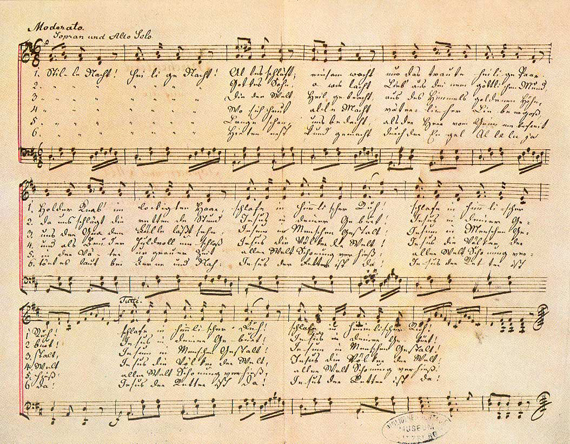 Moderato.
Sopran und Alto Solo
1. Stille Nacht! heilige Nacht! Alles schläft; einsam wacht nur das traute heilige Paar.
2. Gottes Sohn, o wie lacht Lieb aus deinem göttlichen Mund
3. Die der Welt Heil gebracht, aus des Himmels goldenen Höhn,
4. Wo sich heut alle Macht väterlicher Liebe ergoß
5. Lange schon uns bedacht, als der Herr vom Grimme befreit
6. Hirten erst kund gemacht durch der Engel Alleluja
1. Holder Knab im lockigten Haar, schlafe in himmlischer Ruh! schlafe in himmlischer
2. da uns schlägt die rettende Stund Jesus in deiner Geburt! Jesus in deiner Ge
3. uns der Gnaden Fülle läßt sehn, Jesum in Menschen Gestalt! Jesum in Menschen Ge
4. und als Bruder huldvoll umschloß Jesus die Völker der Welt! Jesus die Völker der
5. in der Väter urgrauer Zeit aller Welt Schonung verhieß! aller Welt Schonung ver
6. tönt es laut bei Ferne und Nah: Jesus der Retter ist da! Jesus der Retter ist
Tutti.
1. Ruh! schlafe in himmlischer Ruh! schlafe in himmlischer Ruh!
2. burt! Jesus in deiner Geburt! Jesus in deiner Geburt!
3. stalt, Jesum in Menschen Gestalt! Jesum in Menschen Gestalt!
4. Welt Jesus die Völker der Welt! Jesus die Völker der Welt!
5. hieß aller Welt Schonung verhieß! aller Welt Schonung verhieß!
6. da! Jesus der Retter ist da! Jesus der Retter ist da!
MUSEUM